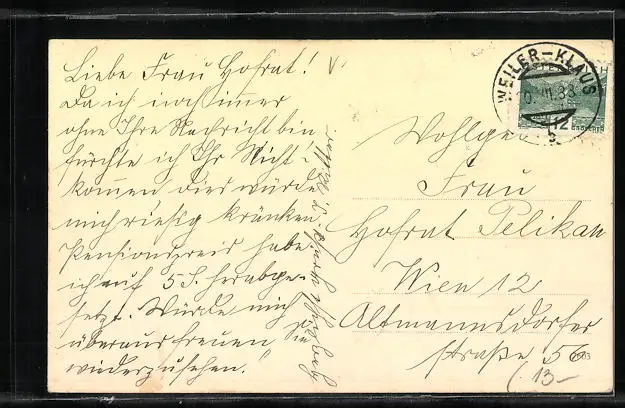 Liebe Frau Hofrat!
Da ich noch immer
ohne Ihre Nachricht bin
fürchte ich Ihr Nicht-
kommen dies würde
mich riesig kränken.
Pensionspreis habe
ich auf 5 S. herabge-
setzt. Würde mich
überaus freuen Sie
wiederzusehen!
WEILER-KLAUS
12
Wohlge
Frau
Hofrat Pelikan
Wien 12
Altmannsdorfer
straße 56
13-